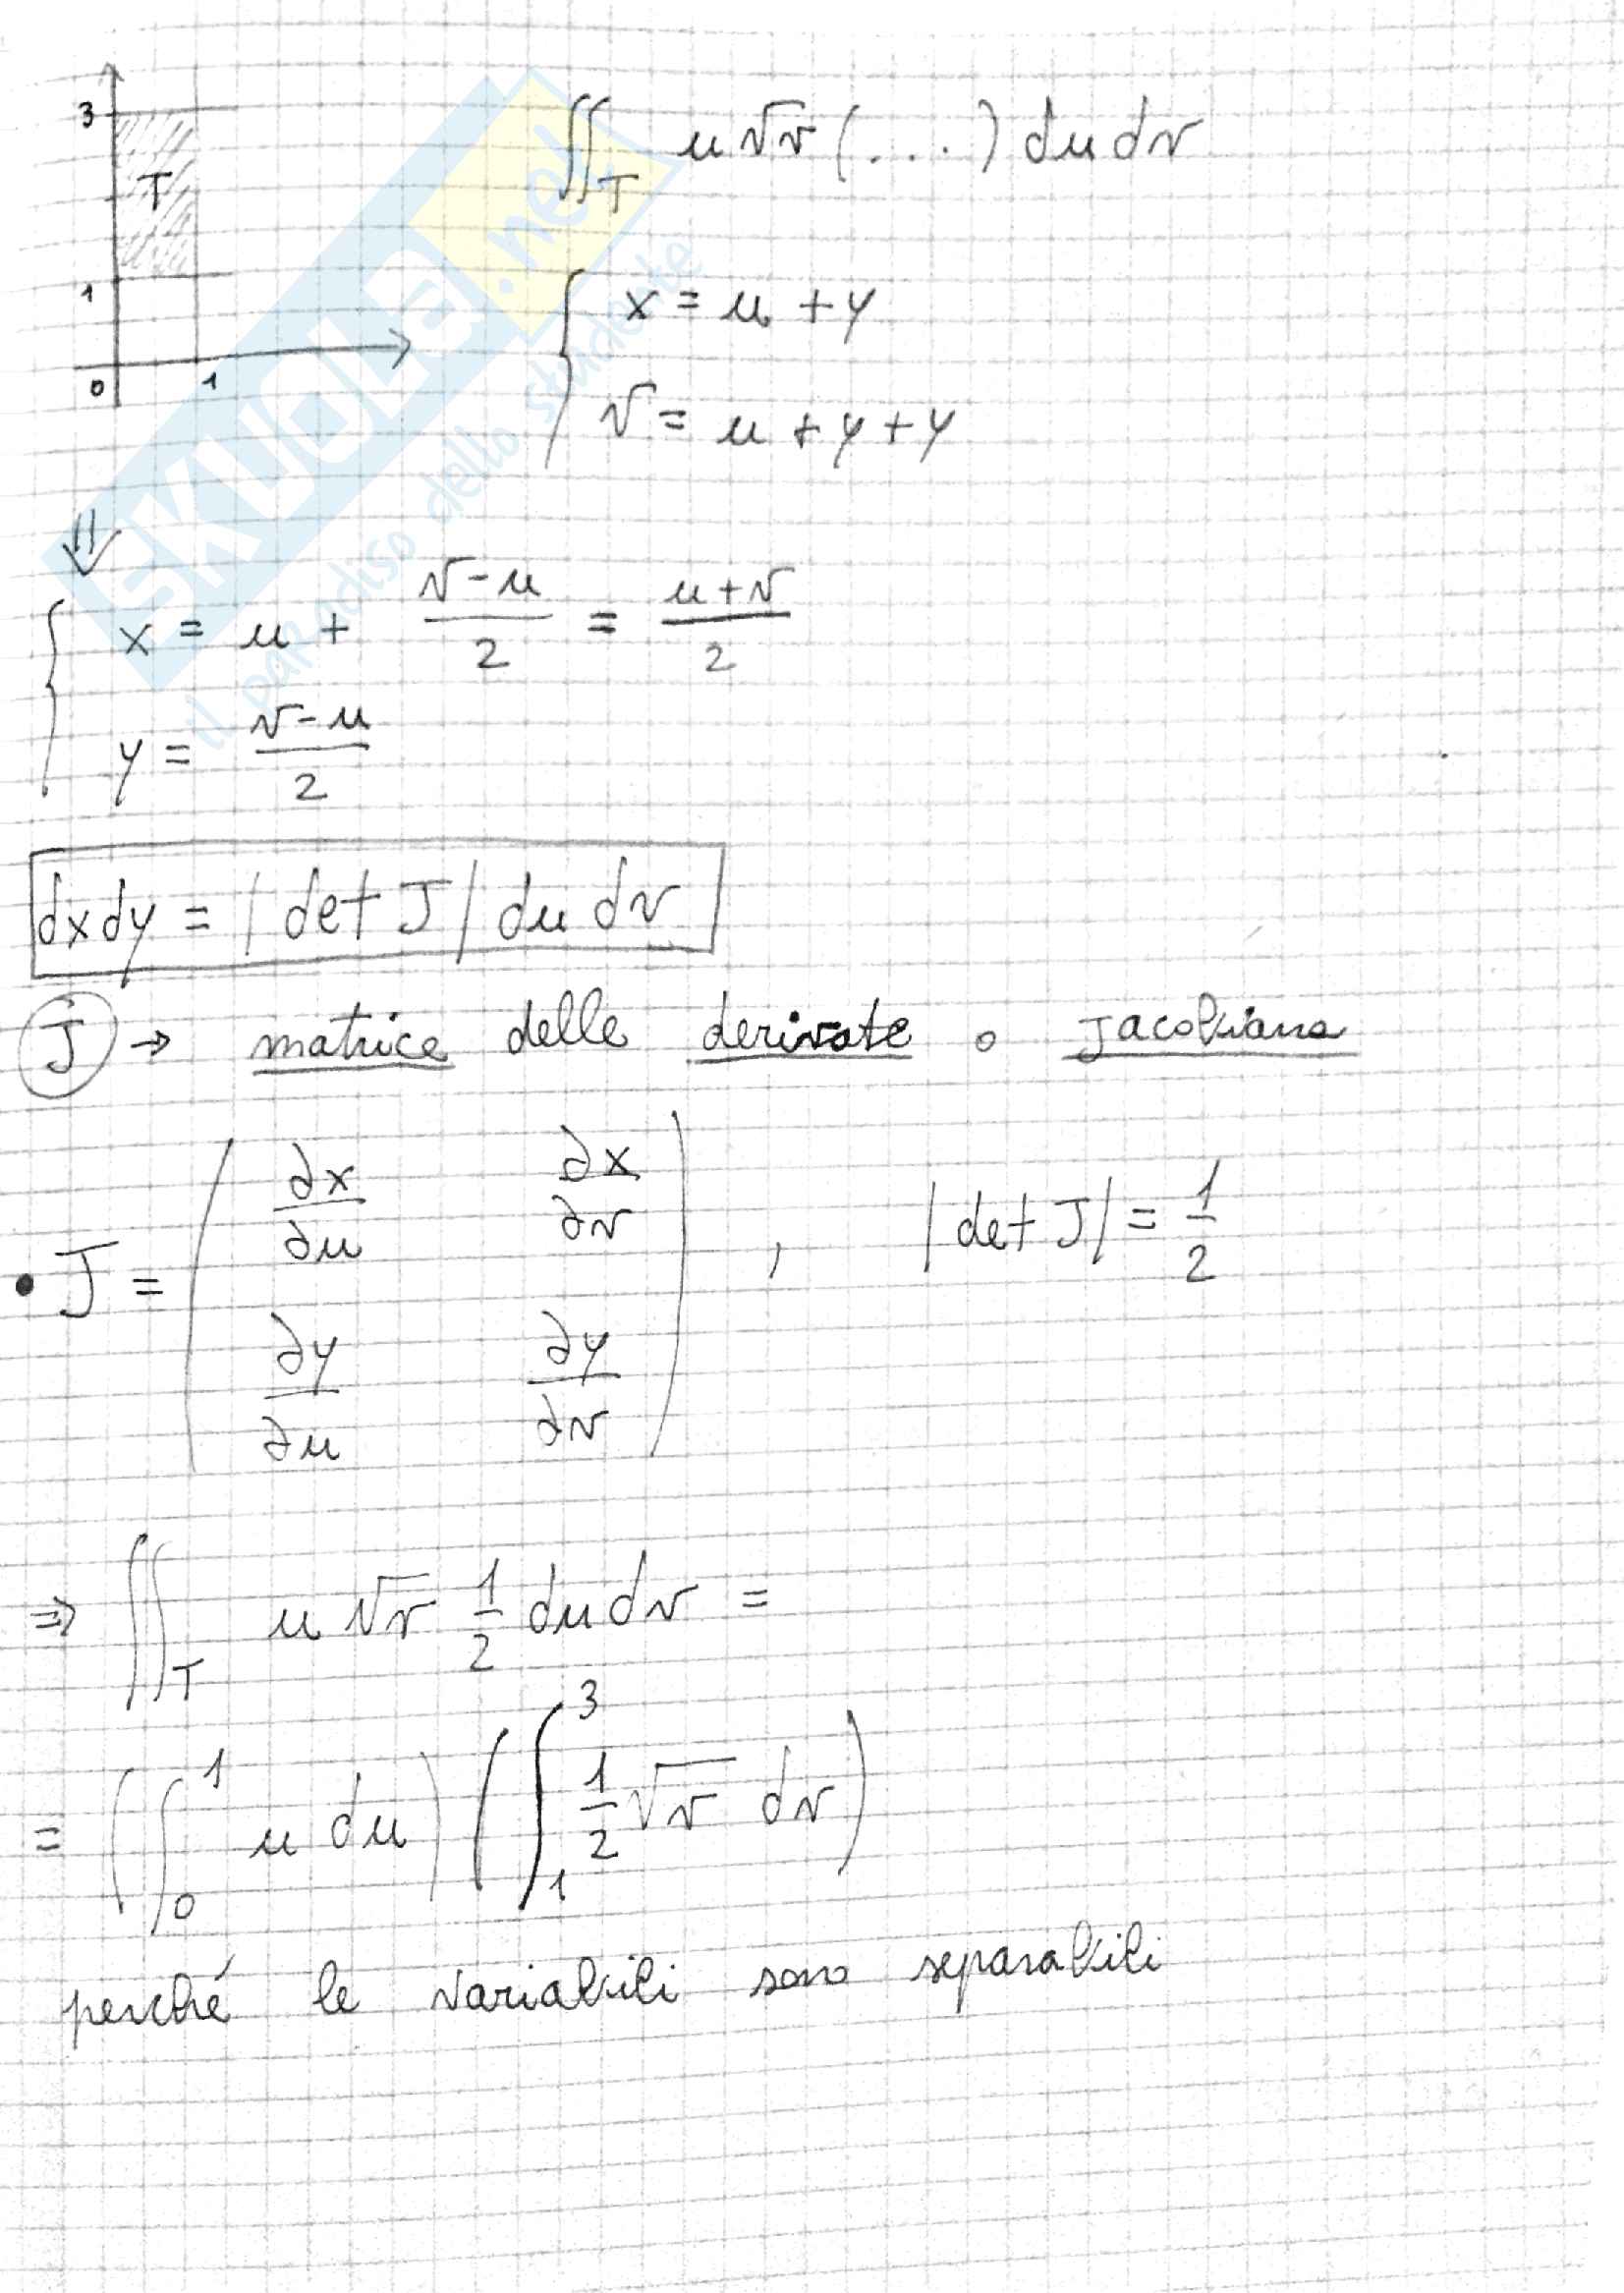 3
T
1
0 1
∬_T u√v (....) du dv
{ x = u + y
v = u + y + y
⇓
{ x = u + (v-u)/2 = (u+v)/2
y = (v-u)/2
dxdy = |det J| du dv
J → matrice delle derivate o Jacobiana
• J = ( ∂x/∂u ∂x/∂v
∂y/∂u ∂y/∂v ) , |det J| = 1/2
⇒ ∬_T u√v 1/2 du dv =
= ( ∫_0^1 u du ) ( ∫_1^3 1/2 √v dv )
perché le variabili sono separabili
SKUOLA.net
il paradiso dello studente